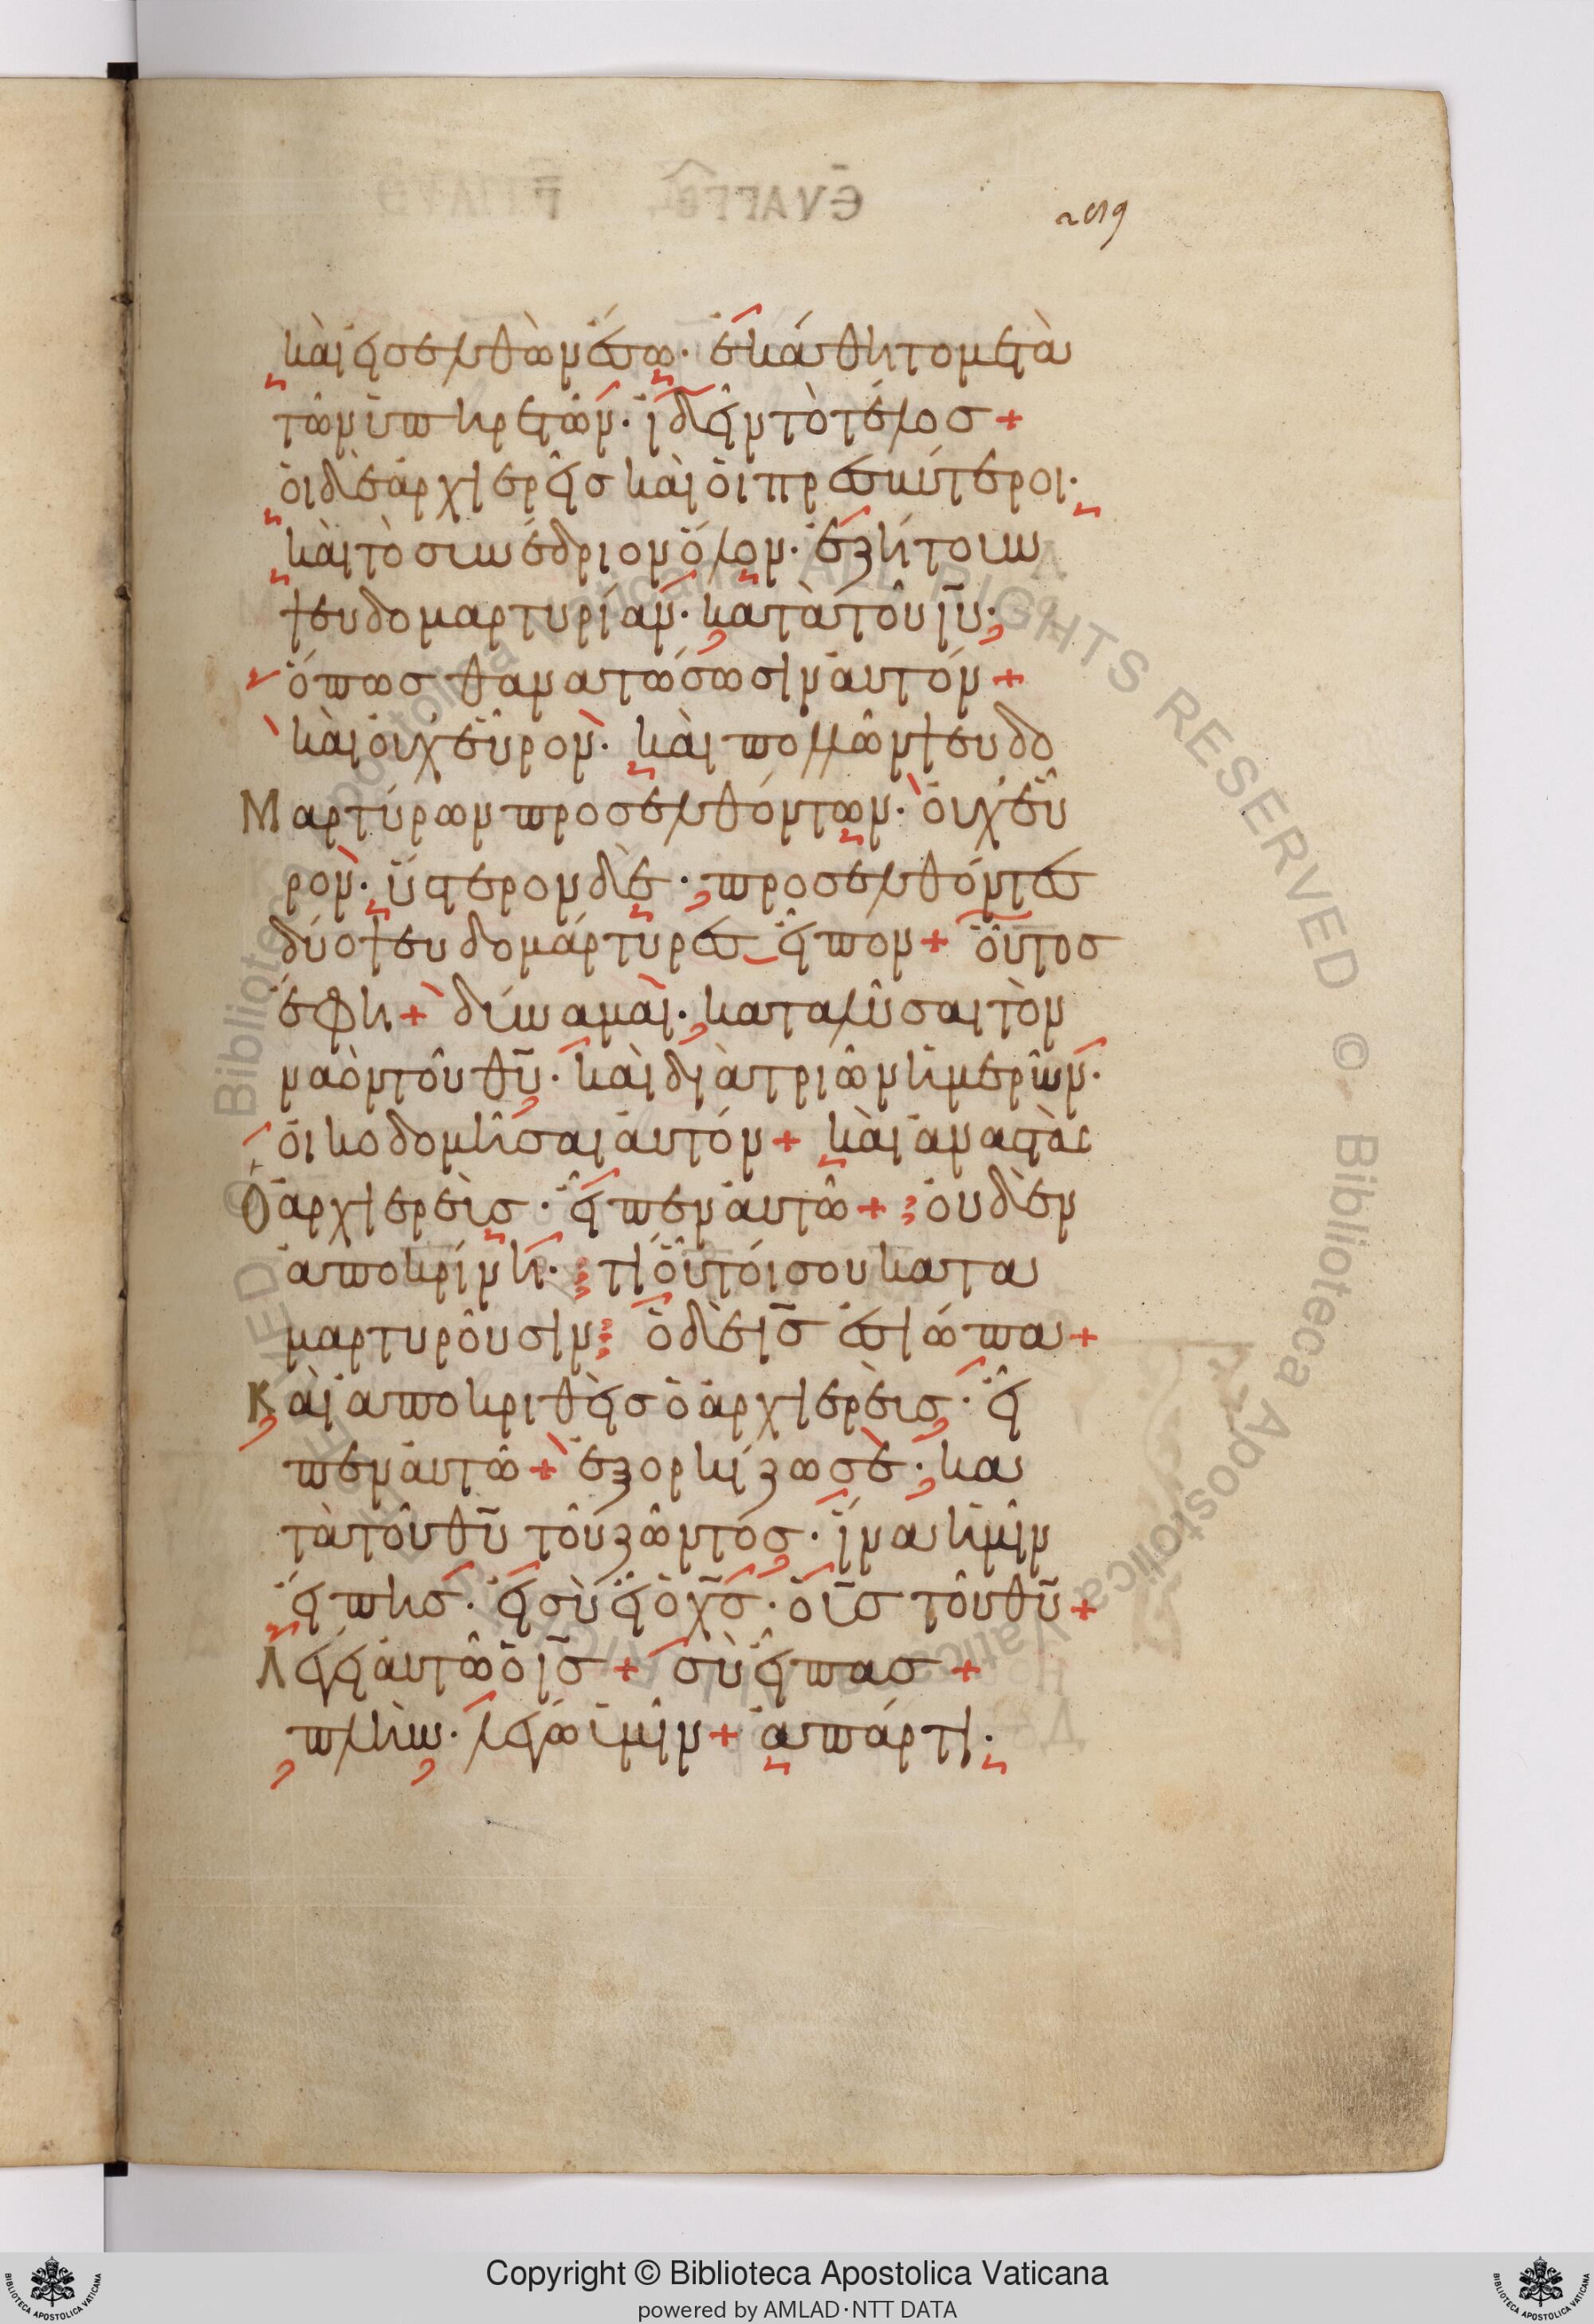 219
καὶ εἰσελθὼν ἔσω· ἐκάθητο μετὰ
τῶν ὑπηρετῶν· ἰδεῖν τὸ τέλοσ +
ὁι δὲ ἀρχιερεῖσ καὶ ὁι πρεσβύτεροι·
καὶ τὸ συνέδριον ὅλον· ἐζήτουν
ψευδομαρτυρίαν· κατὰ τοῦ ιυ̅·
ὅπωσ θανατώσωσιν ἀυτόν +
καὶ ὀυχ εὗρον· καὶ πολλῶν ψευδο
Μαρτύρων προσελθόντων· ὀυχ εὗ
ρον· ὕστερον δὲ· προσελθόντεσ
δύο ψευδομάρτυρεσ εἶπον + οὗτοσ
ἔφη + δύναμαι· καταλῦσαι τὸν
ναὸν τοῦ θυ̅· καὶ διὰ τριῶν ἡμερῶν·
ὀικοδομῆσαι ἀυτόν + καὶ ἀναστὰσ
Ὁ ἀρχιερεὺσ· εἶπεν ἀυτῶ + ὀυδὲν
ἀποκρίνη· τί οὗτοί σου κατα
μαρτυροῦσιν ὁ δὲ ισ̅ ἐσιώπα +
Καὶ ἀποκριθεὶσ ὁ ἀρχιερεὺσ· εἶ
πεν ἀυτῶ + ἐξορκίζω σὲ· κα
τὰ τοῦ θυ̅ τοῦ ζῶντοσ· ἵνα ἡμῖν
εἴπησ· εἰ σὺ εἶ ὁ χσ̅· ὁ υσ̅ τοῦ θυ̅ +
Λέγει ἀυτῶ ὁ ισ̅ + σὺ εἶπασ +
πλὴν· λέγω ὑμῖν + ἀπάρτι·
Copyright © Biblioteca Apostolica Vaticana
powered by AMLAD·NTT DATA